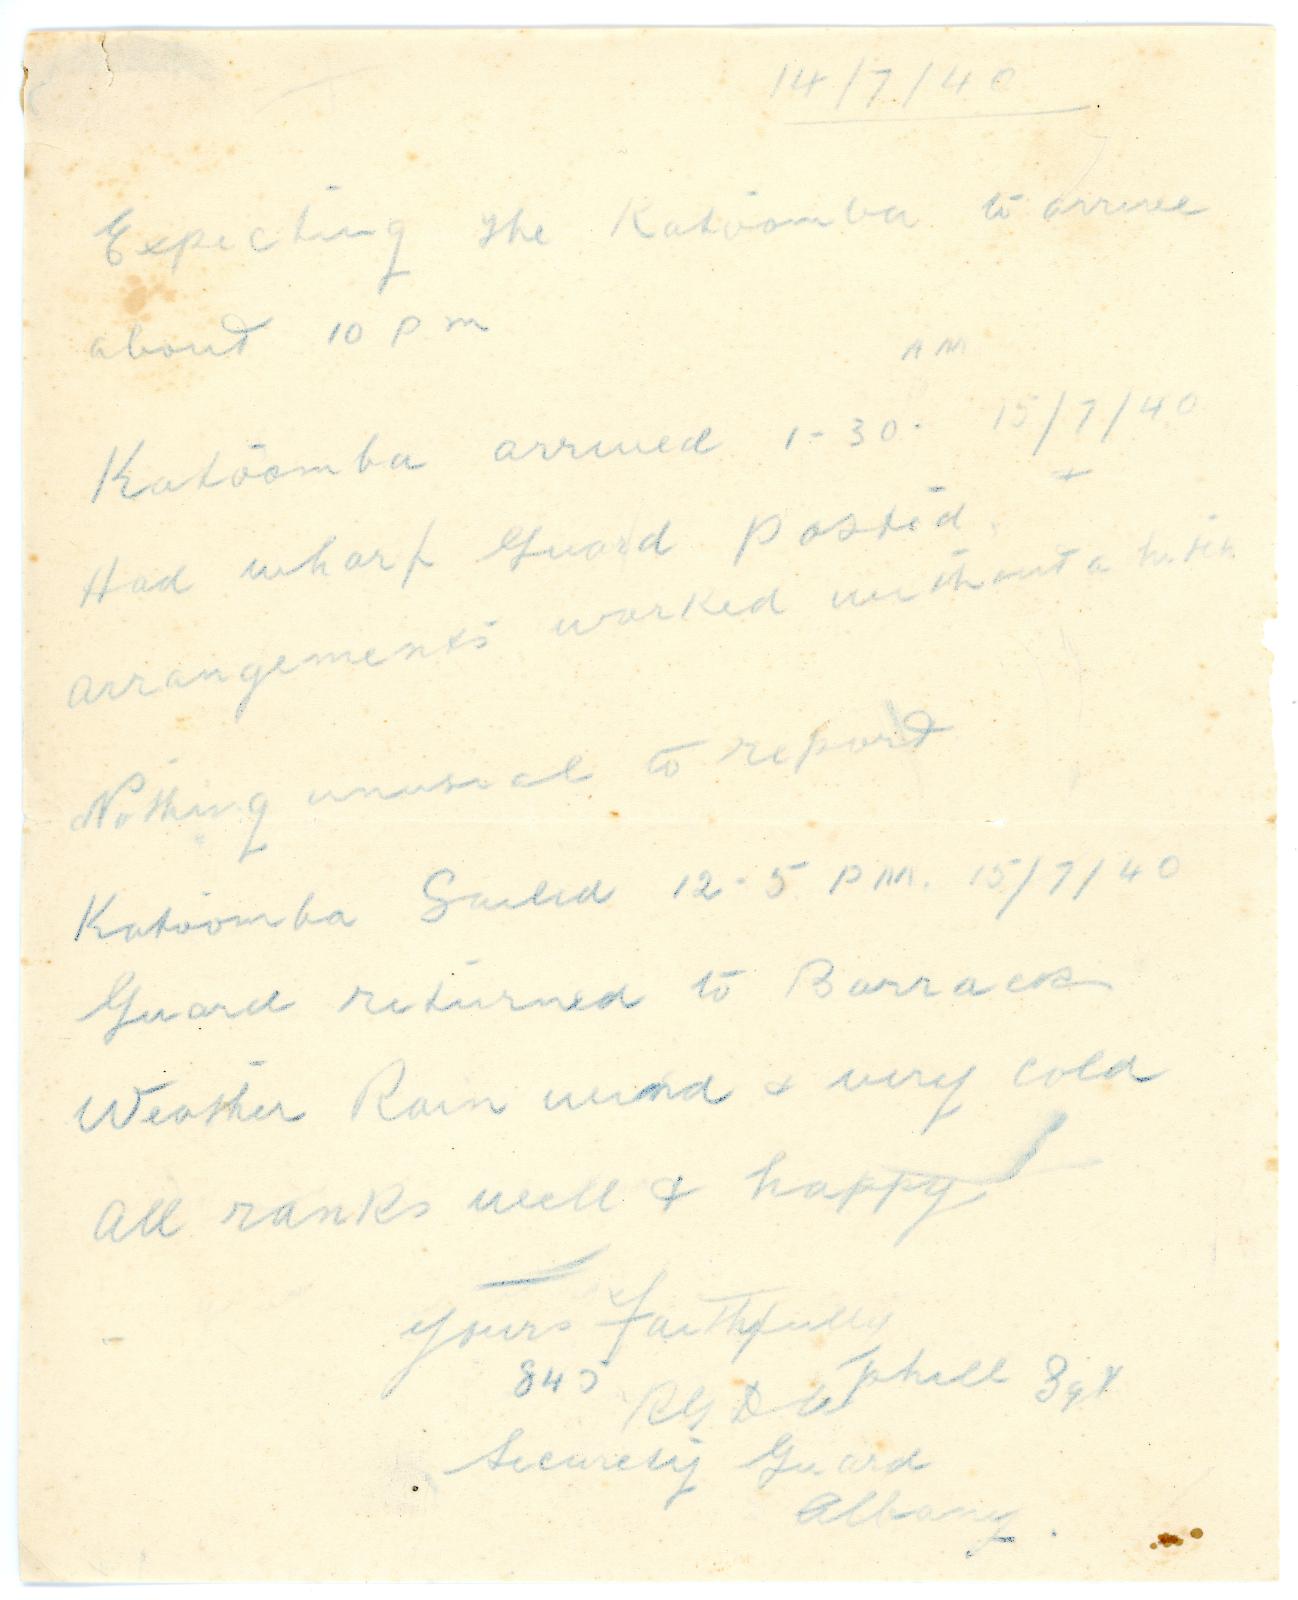 14/7/40
Expecting the Katoomba to arrive
about 10 pm
AM
Katoomba arrived 1-30. 15/7/40
Had wharf Guard posted.
arrangements worked without a hitch
Nothing unusual to report
Katoomba Sailed 12-5 PM. 15/7/40
Guard returned to Barracks
Weather Rain wind & very cold
All ranks well & happy
Yours Faithfully
845 Sgt
Security Guard
Albany.